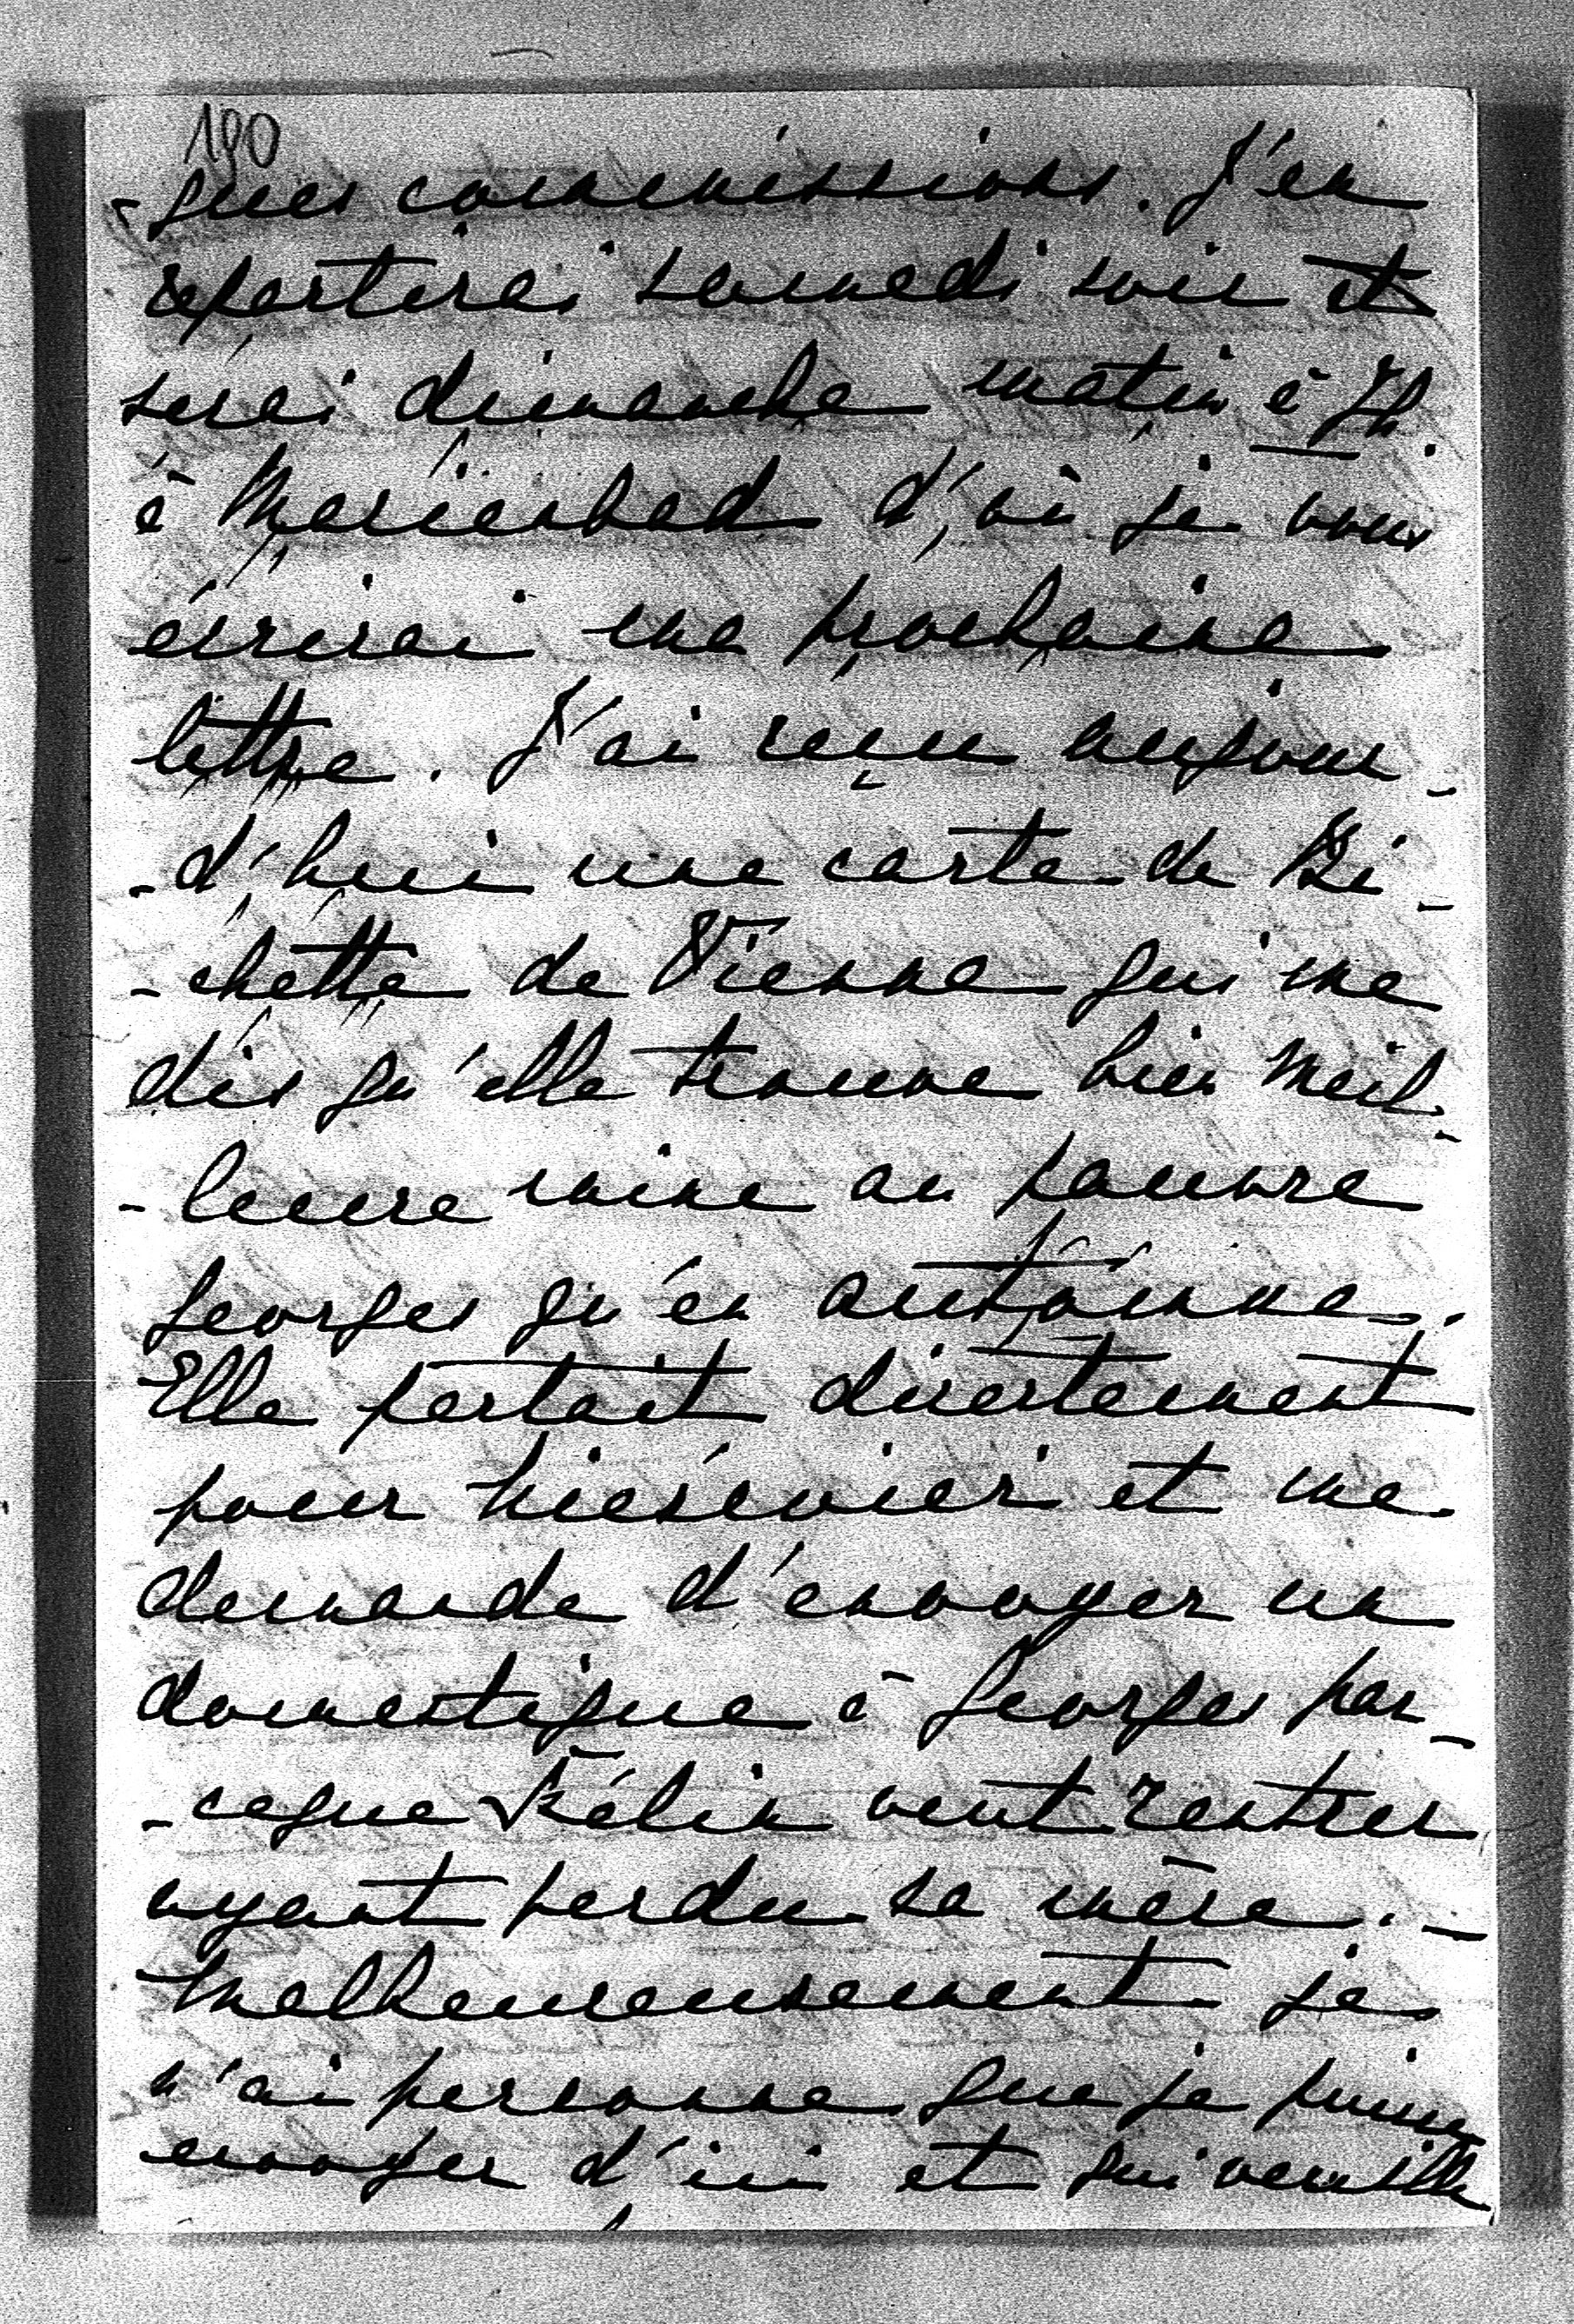 190
-ques commissions. J'en
repartirai samedi soir et
serai dimanche matin à
à Marienbad d'où je vous
écrirai ma prochaine
lettre. J'ai reçu aujour-
-d'hui une carte de Bi-
-chette de Vienne qui me
dis qu'elle trouve bien meil-
-leure mine au pauvre
Georges qu'en automne.
Elle partait directement
pour et me
demande d'envoyer un
domestique à Georges par-
-ceque Félix veut rentrer
ayant perdu sa mère. -
Malheureusement je
n'ai personne que je puisse
envoyer d'ici et qui veuille